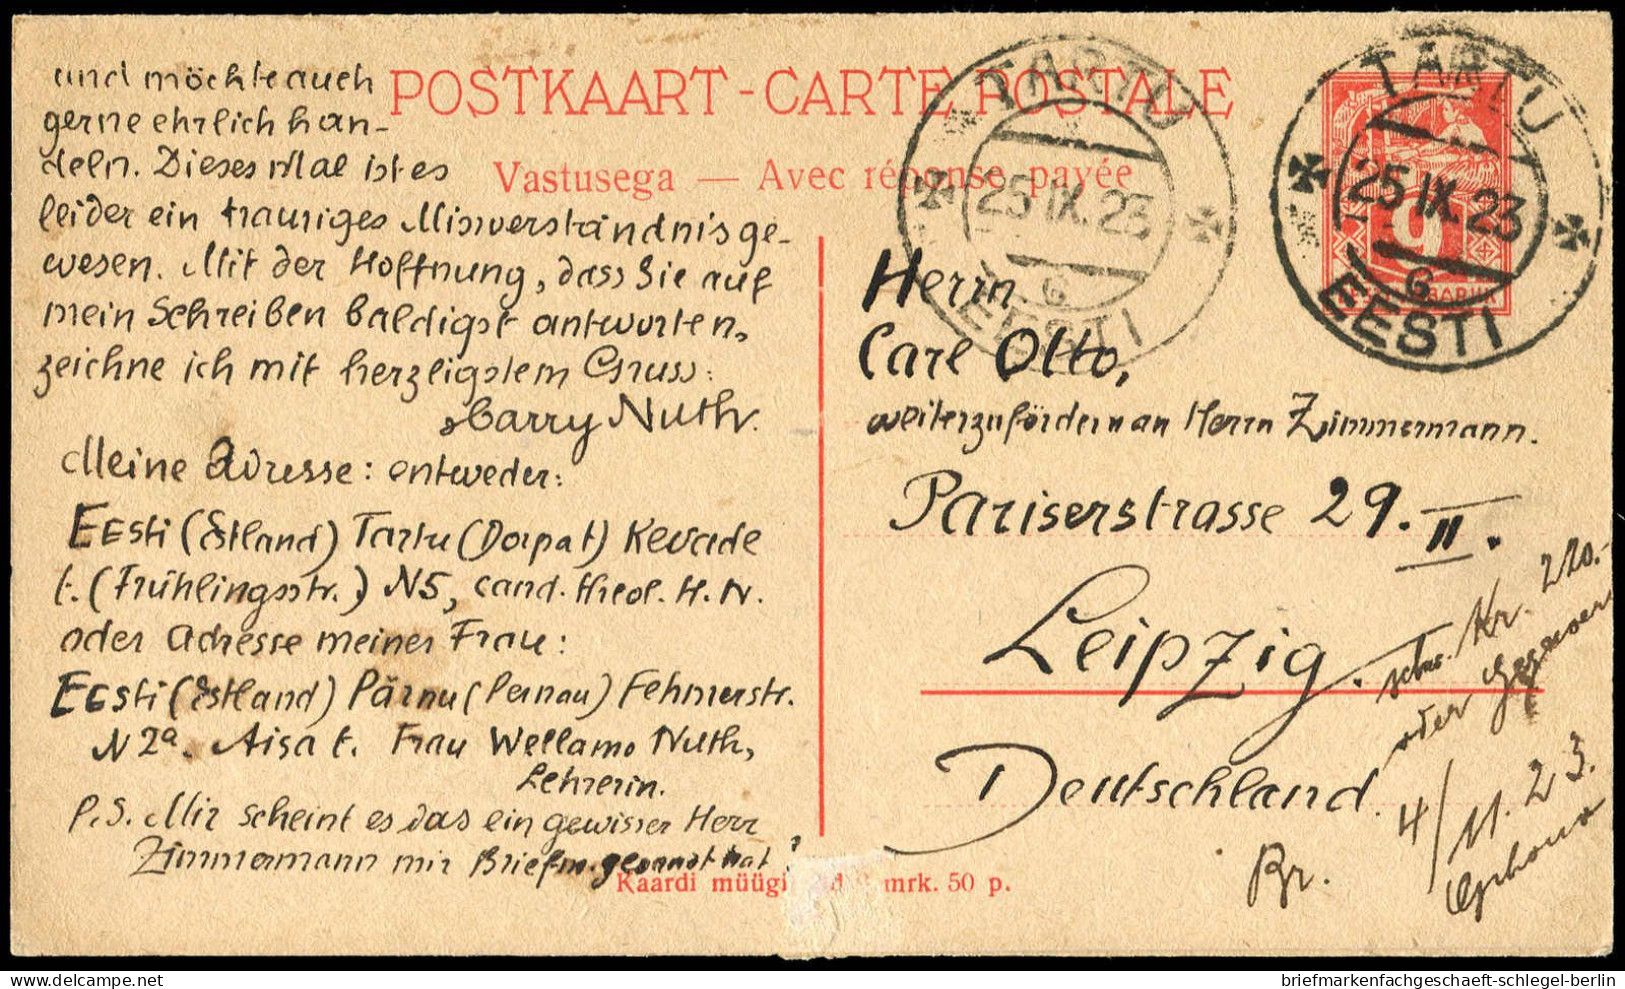 POSTKAART - CARTE POSTALE
Vastusega — Avec réponse payée
TARTU
25 IX. 23
G
EESTI
TARTU
25 IX. 23
G
EESTI
9
und möchte auch
gerne ehrlich han-
deln. Dieses Mal ist es
leider ein trauriges Missverständnis ge-
wesen. Mit der Hoffnung, dass Sie auf
mein Schreiben baldigst antworten,
zeichne ich mit herzligstem Gruss:
Harry Nuth.
Meine Adresse: entweder:
Eesti (Estland) Tartu (Dorpat) Kevade
t. (Frühlingsstr.) N5, cand. theol. H. N.
oder Adresse meiner Frau:
Eesti (Estland) Pärnu (Pernau) Fehmerstr.
N 2a. Aisa t. Frau Wellamo Nuth,
Lehrerin.
P.S. Mir scheint es das ein gewisser Herr
Zimmermann mir Briefm. gesandt hat?
Herrn
Carl Otto,
weiterzufördern an Herrn Zimmermann.
Pariserstrasse 29. II.
Leipzig.
Deutschland.
Kr. 220.-
oder
4/11.23.
Br.
Kaardi müügi mrk. 50 p.
briefmarkenfachgeschaeft-schlegel-berlin